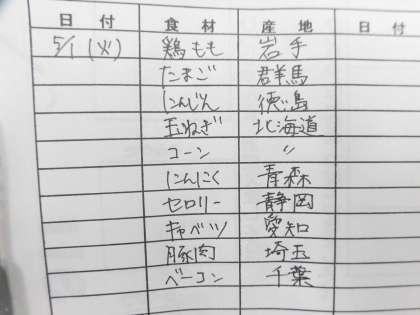 日付 食材 産地 日付
5/1(火) 鶏もも 岩手
たまご 群馬
にんじん 徳島
玉ねぎ 北海道
コーン 〃
にんにく 青森
セロリー 静岡
キャベツ 愛知
豚肉 埼玉
ベーコン 千葉